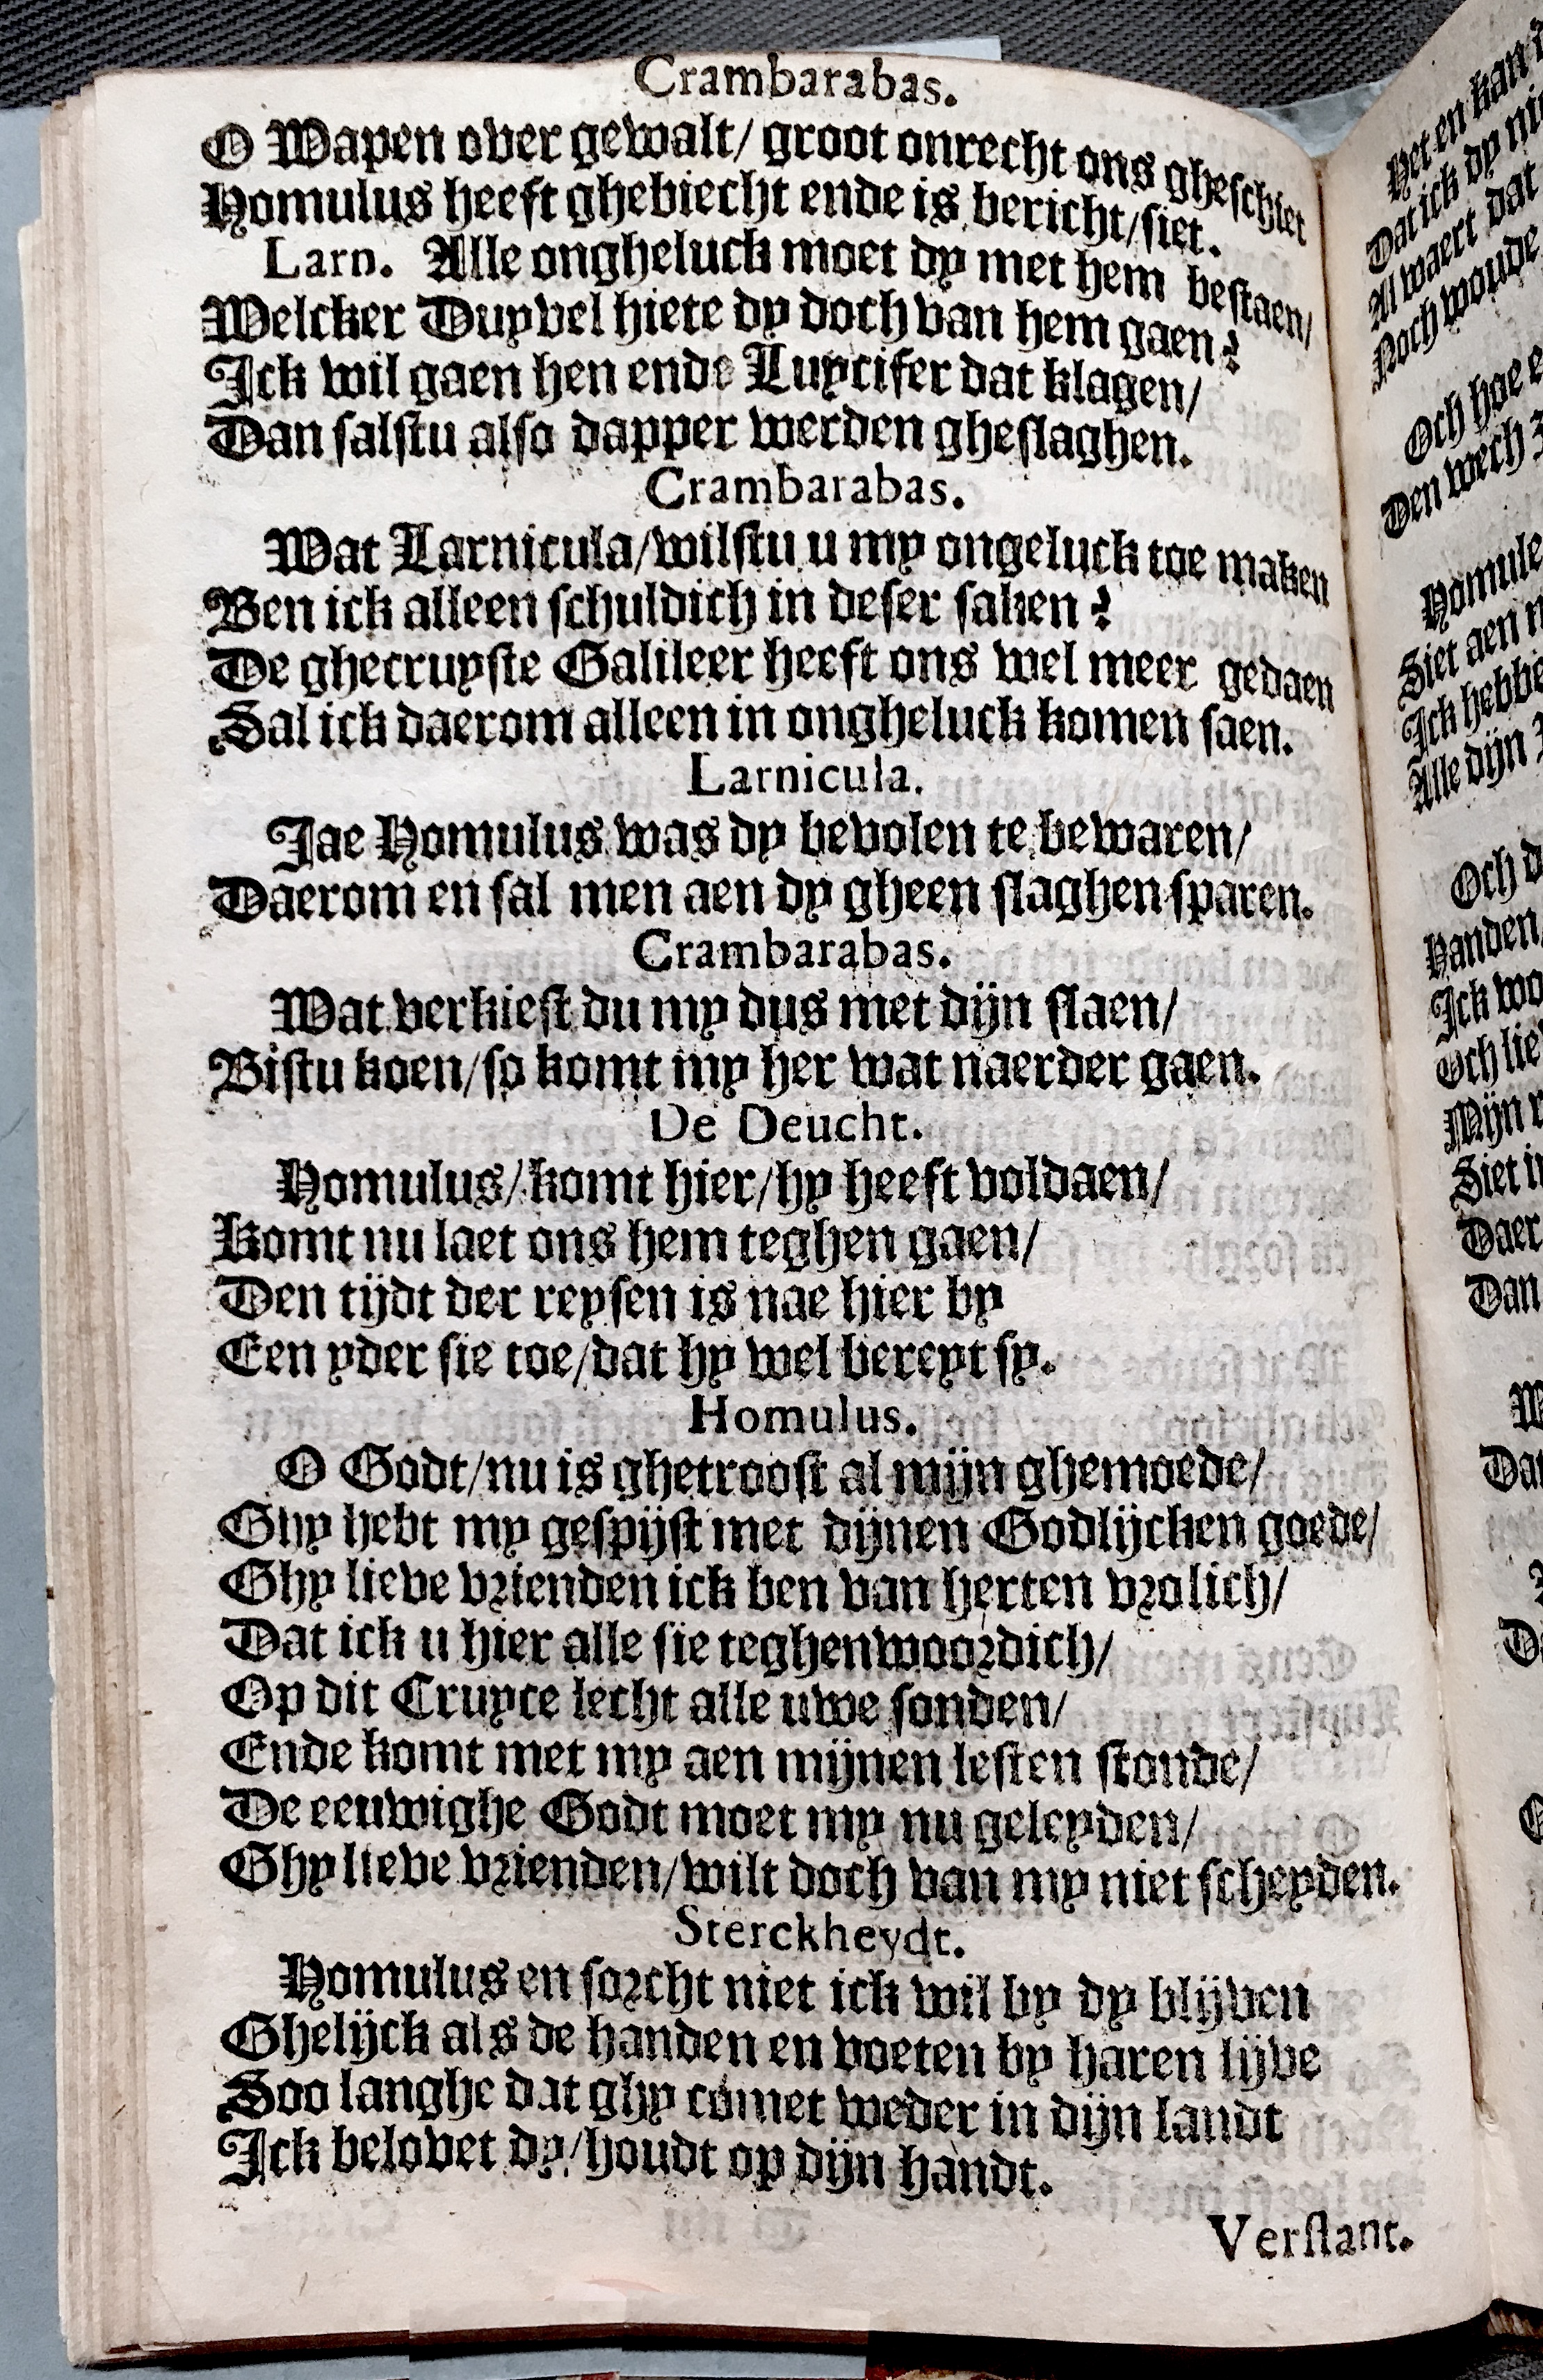 Crambarabas.
O Wapen over gewalt/ groot onrecht ons gheschiet
Homulus heeft ghebiecht ende is bericht/siet.
Larn. Alle ongheluck moet dy met hem bestaen/
Welcker Duyvel hiete dy doch van hem gaen?
Ick wil gaen hen ende Luycifer dat klagen/
Dan salstu also dapper werden gheslaghen.
Crambarabas.
Wat Larnicula/wilstu u my ongeluck toe maken
Ben ick alleen schuldich in deser saken?
De ghecruyste Galileer heeft ons wel meer gedaen
Sal ick daerom alleen in ongheluck komen saen.
Larnicula.
Jae Homulus was dy bevolen te bewaren/
Daerom en sal men aen dy gheen slaghen sparen.
Crambarabas.
Wat verkiest du my dus met dijn slaen/
Bistu koen/so komt my her wat naerder gaen.
De Deucht.
Homulus/komt hier/hy heeft voldaen/
Komt nu laet ons hem teghen gaen/
Den tijdt der reysen is nae hier by
Een yder sie toe/dat hy wel bereyt sy.
Homulus.
O Godt/nu is ghetroost al mijn ghemoede/
Ghy hebt my gespijst met dijnen Godlijcken goede/
Ghy lieve vrienden ick ben van herten vrolich/
Dat ick u hier alle sie teghenwoordich/
Op dit Cruyce lecht alle uwe sonden/
Ende komt met my aen mijnen lesten stonde/
De eeuwighe Godt moet my nu geleyden/
Ghy lieve vrienden/wilt doch van my niet scheyden.
Sterckheydt.
Homulus en sorcht niet ick wil by dy blijven
Ghelijck als de handen en voeten by haren lijve
Soo langhe dat ghy comet weder in dijn landt
Ick belovet dy/houdt op dijn handt.
Verstant.
Het en kan
Dat ick dy
Al waert dat
Noch woude
Och hoe
Den wech
Homule
Siet aen
Ick hebbe
Alle dijn
Och
Handen
Ick
Och
Mijn
Siet
Daer
Dan